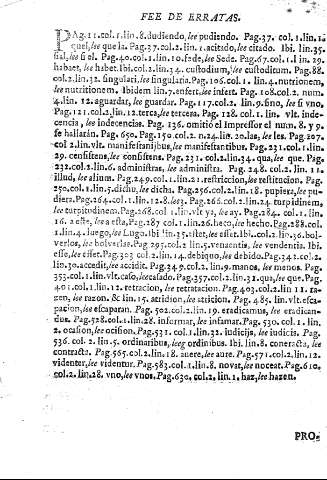 FEE DE ERRATAS.
PAg. 11. col. 1. lin. 8. dudiendo, lee pudiendo. Pag. 37. col. 1. lin. 12
quel, lee que la. Pag. 37. col. 2. lin. 1. acitado, lee citado. Ibi. lin. 35.
sial, lee si el. Pag. 40. col. 1. lin. 10. fede, lee Sede. Pag. 67. col. 1. lin. 29.
habaet, lee habet. Ibi. col. 2. lin. 34. custodium, lee custoditum. Pag. 88.
col. 2. lin. 32. singulati, lee singularia. Pag. 106. col. 1. lin. 4. nutrionem,
lee nutritionem. Ibidem lin. 7. enfert, lee infert. Pag. 108. col. 2. num.
4. lin. 12. aguardar, lee guardar. Pag. 117. col. 2. lin. 9. sino, lee si vno,
Pag. 121. col. 2. lin. 12. terca, lee tercera. Pag. 128. col. 1. lin. vlt. inde-
cencia, lee indecencias. Pag. 136. omitiò el Impressor el num. 8. y 9.
se hallaràn. Pag. 650. Pag. 150. col. 2. n. 24. lin. 20. las, lee les. Pag. 207.
col. 2. lin. vlt. manifestanibus, lee manifestantibus. Pag. 231. col. 1. lin.
29. censistens, lee consistens. Pag. 231. col. 2. lin. 34. qua, lee que. Pag.
232. col. 2. lin. 6. administras, lee administra. Pag. 248. col. 2. lin. 11.
illud, lee aliud. Pag. 249. col. 1. lin. 21. resfriccion, lee restriccion. Pag.
250. col. 1. lin. 5. dichu, lee dicha. Pag. 256. col. 2. lin. 18. pupiera, lee pu-
diera. Pag. 264. col. 1. lin. 12. 8. lee 3. Pag. 266. col. 2. lin. 24. turpidinem,
lee turpitudinem. Pag. 268. col. 1. lin. vlt. ya, lee ay. Pag. 284. col. 1. lin.
16. a este, lee a esta, Pag. 287. col. 1. lin. 26. heco, lee hecho. Pag. 288. col.
1. lin. 4. luego, lee Lugo. Ibi lin. 35. sitet, lee esset. Ibi. col. 2. lin. 36. bol-
verlos, lee bolverlas. Pag. 297. col. 2. lin. 5. venaentis, lee vendentis. Ibi.
esse, lee esset. Pag. 303. col. 2. lin. 14. debiquo, lee debido. Pag. 342. col. 2.
lin. 30. accedit, lee accidit. Pag. 349. col. 2. lin. 9. manos, lee menos. Pag.
353. col. 1. lin. vlt. caso, lee casado. Pag. 357. col. 2. lin. 31. qua, lee que. Pag.
401. col. 1. lin. 12. retracion, lee retratacion. Pag. 403. col. 2. lin. 11. ra-
zen, lee razon. & lin. 15. atridion, lee atricion. Pag. 485. lin. vlt. esca-
pacion, lee escaparon. Pag. 502. col. 2. lin. 19. eradicamus, lee eradican-
dus. Pag. 528. col. 1. lin. 28. informar, lee infamar. Pag. 530. col. 1. lin.
2. ocasion, lee ocision. Pag. 531. col. 1. lin. 32. iudicijs, lee iudicis. Pag.
536. col. 2. lin. 5. ordinaribus, leeg ordinibus. Ibi. lin. 8. coneracta, lee
contracta. Pag. 565. col. 2. lin. 18. auere, lee aure. Pag. 571. col. 2. lin. 12.
videnter, lee videntur. Pag. 583. col. 1. lin. 8. novat, lee noceat. Pag. 610.
col. 2. lin. 28. vno, lee vnos. Pag. 630. col. 2. lin. 1. haz, lee hazen.
PRO-